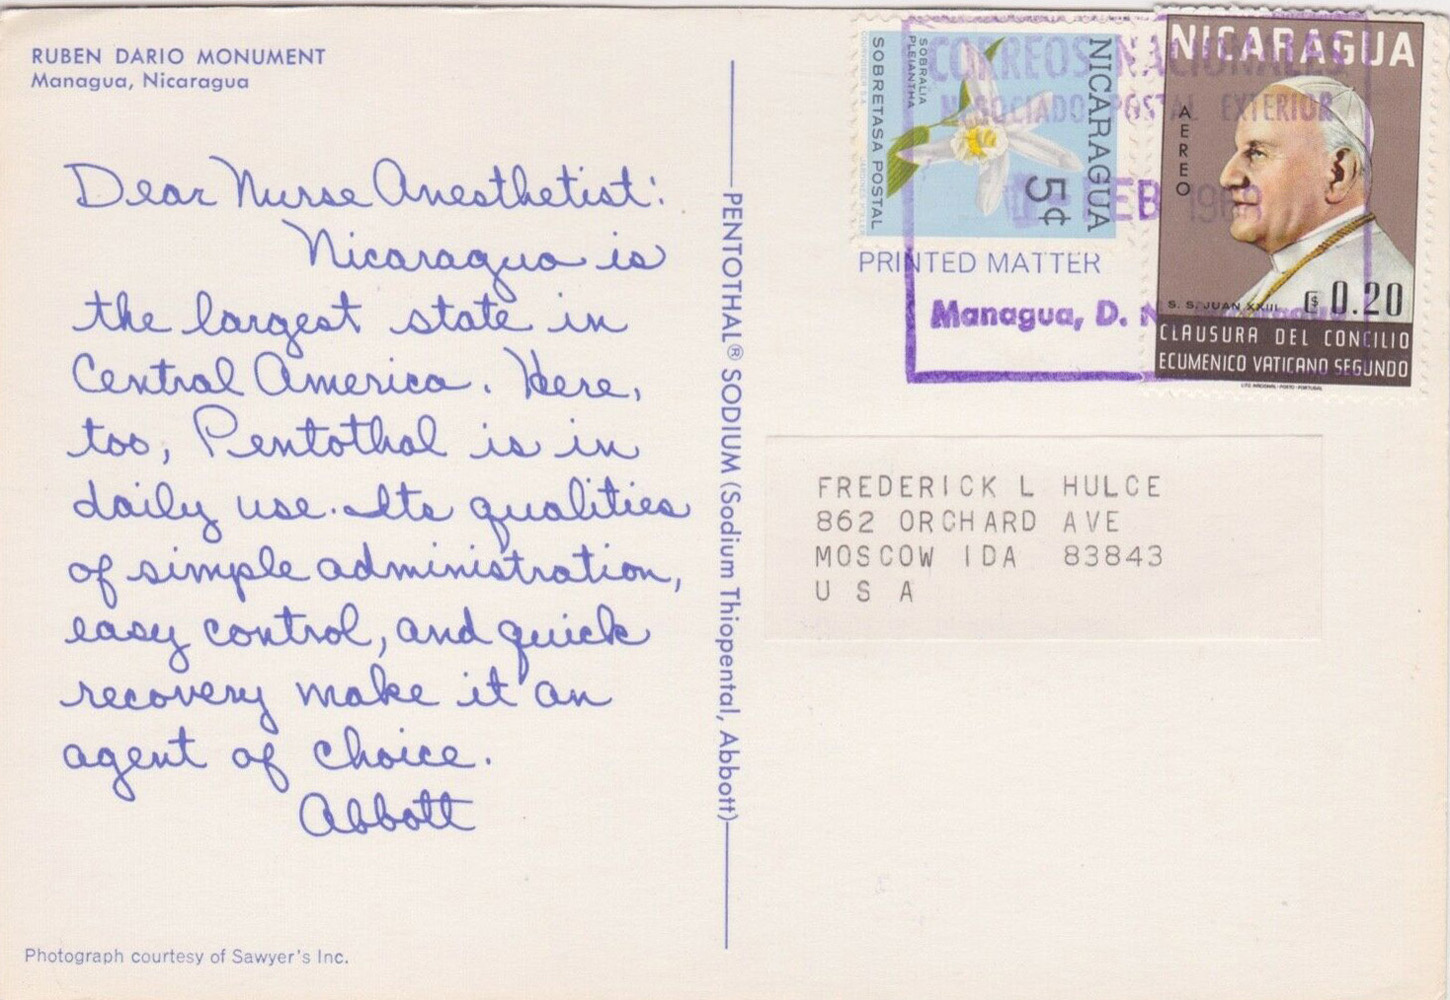 RUBEN DARIO MONUMENT
Managua, Nicaragua
Dear Nurse Anesthetist:
Nicaragua is
the largest state in
Central America. Here,
too, Pentothal is in
daily use. Its qualities
of simple administration,
easy control, and quick
recovery make it an
agent of choice.
Abbott
Photograph courtesy of Sawyer's Inc.
PENTOTHAL® SODIUM (Sodium Thiopental, Abbott)
NICARAGUA
5¢
SOBRALIA
PLEIANTHA
SOBRETASA POSTAL
NICARAGUA
AEREO
S. S. JUAN XXIII
₡$ 0.20
CLAUSURA DEL CONCILIO
ECUMENICO VATICANO SEGUNDO
CORREOS NACIONALES
NEGOCIADO POSTAL EXTERIOR
FEB 196
Managua, D. N.
PRINTED MATTER
FREDERICK L HULCE
862 ORCHARD AVE
MOSCOW IDA 83843
U S A